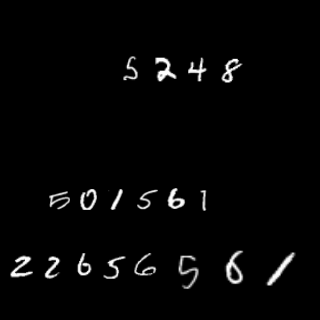 5248
501561
22656561